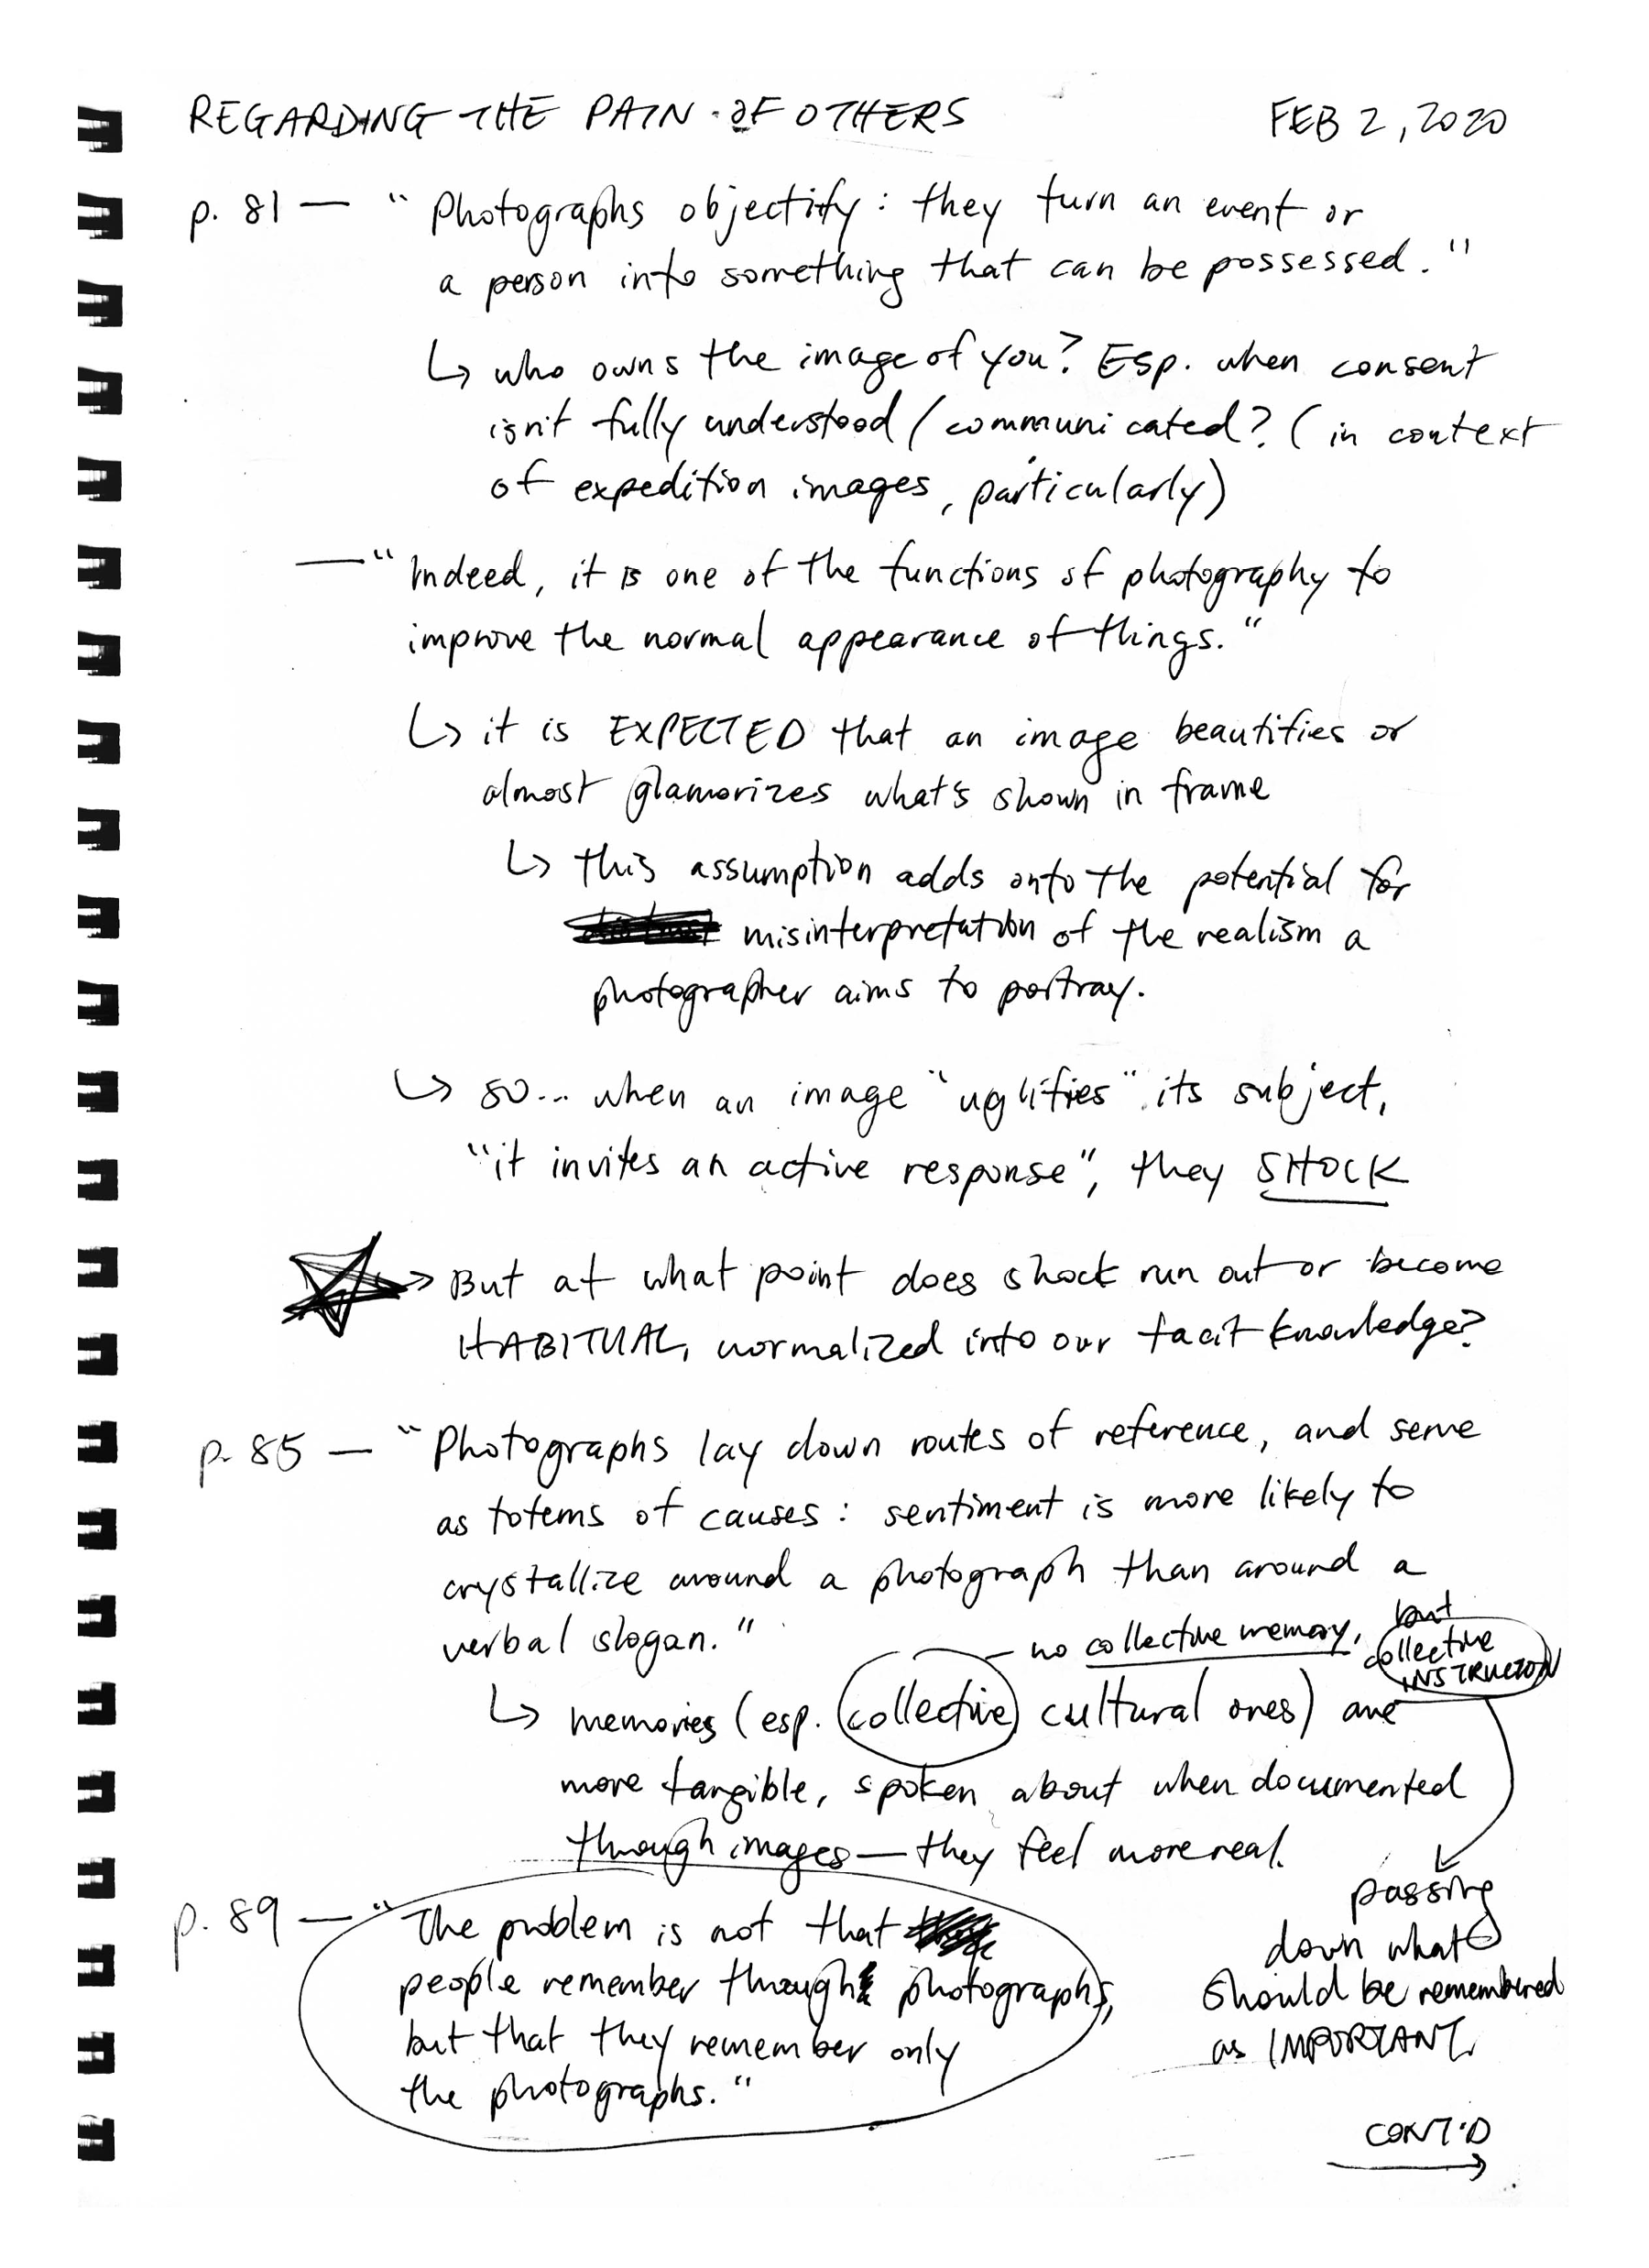 REGARDING THE PAIN OF OTHERS FEB 2, 2020
p. 81 — "Photographs objectify: they turn an event or
a person into something that can be possessed."
↳ who owns the image of you? Esp. when consent
isn't fully understood / communicated? (in context
of expedition images, particularly)
— "Indeed, it is one of the functions of photography to
improve the normal appearance of things."
↳ it is EXPECTED that an image beautifies or
almost glamorizes what's shown in frame
↳ this assumption adds onto the potential for
misinterpretation of the realism a
photographer aims to portray.
↳ so... when an image "uglifies" its subject,
"it invites an active response", they SHOCK
→ But at what point does shock run out or become
HABITUAL, normalized into our tacit knowledge?
p. 85 — "Photographs lay down routes of reference, and serve
as totems of causes: sentiment is more likely to
crystallize around a photograph than around a
verbal slogan."
— no collective memory, but
collective
INSTRUCTION
↳ memories (esp. collective cultural ones) are
more tangible, spoken about when documented
through images — they feel more real.
passing
down what
should be remembered
as IMPORTANT.
p. 89 — "The problem is not that
people remember through photographs,
but that they remember only
the photographs."
CONT'D
→